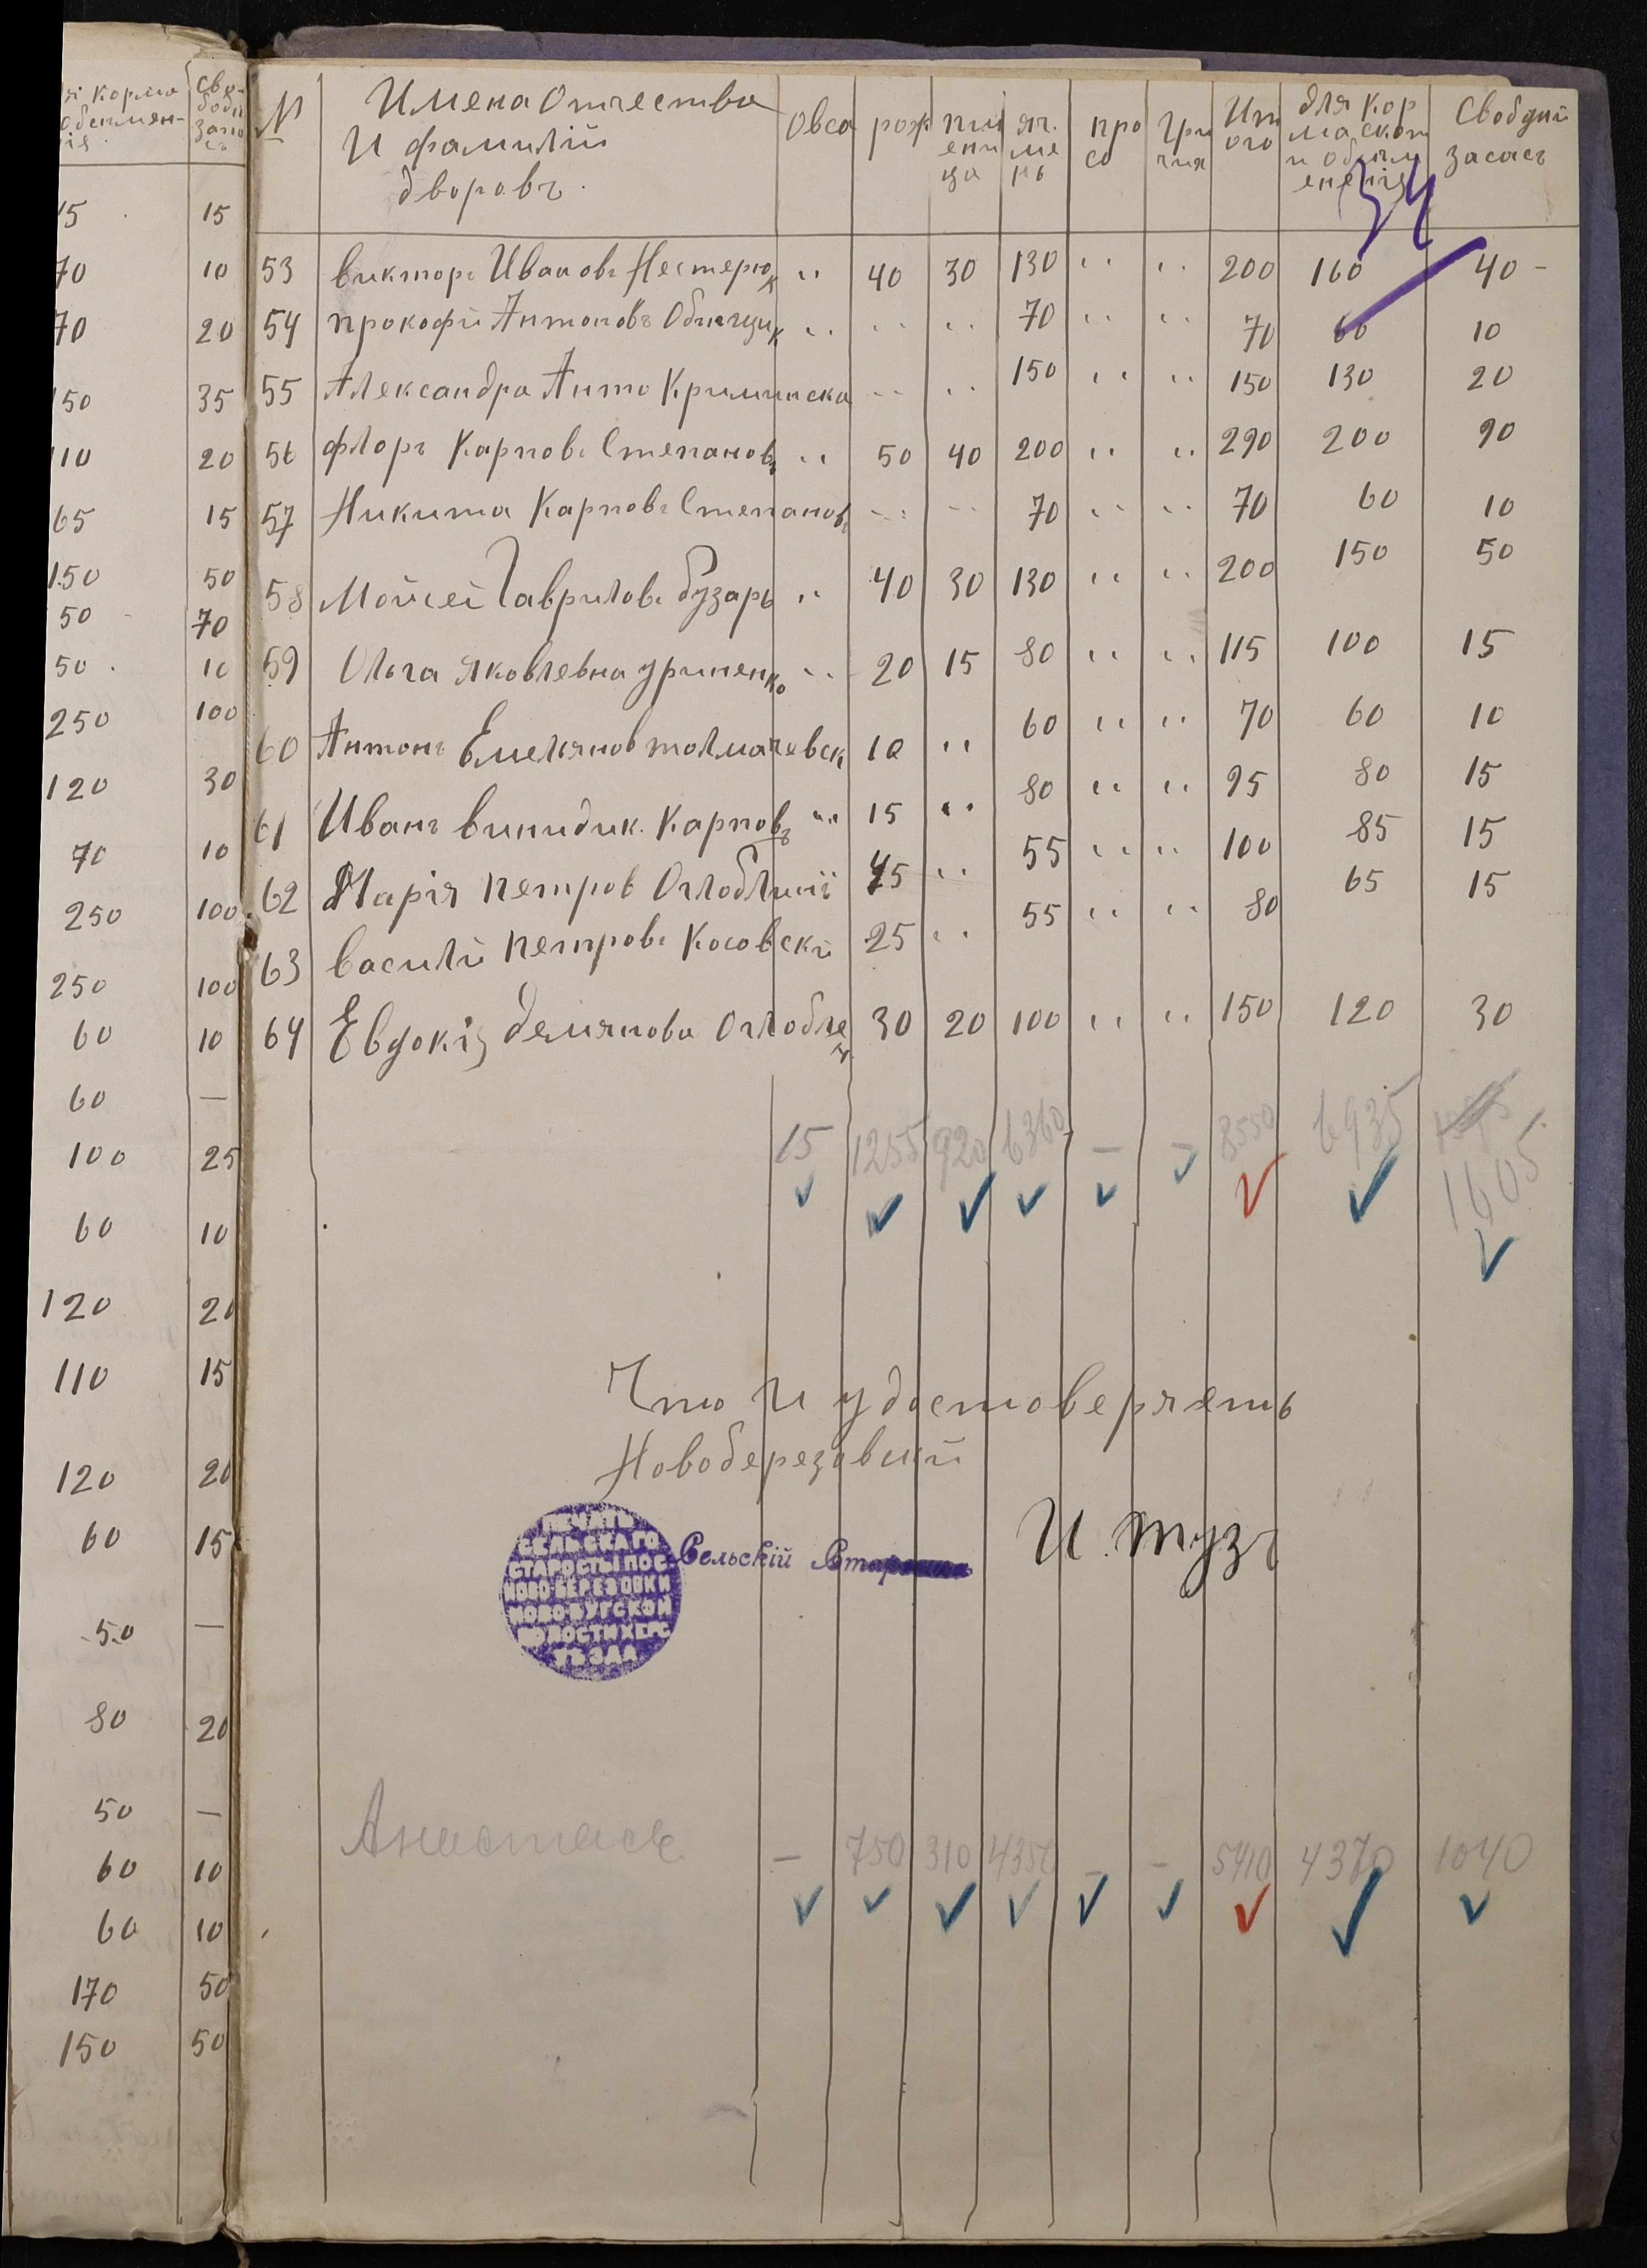 ія корма
обсимен-
ія
Сво-
бодн
запа
съ
15 15
70 10
70 20
150 35
110 20
65 15
150 50
50 70
50 10
250 100
120 30
70 10
250 100
250 100
60 10
60 —
100 25
60 10
120 20
110 15
120 20
60 15
50 —
80 20
50 —
60 10
60 10
170 50
150 50
34
№ Имена Отчества И фамилій дворовъ. Овса рож пшеница ячмень просо гричия Итого для корма скот и обсименения Свобдний засасъ
53 Викторъ Ивановъ Нестерюк " 40 30 130 " " 200 160 40 -
54 прокофи Антоновъ Обнищик " " " 70 " " 70 60 10
55 Александра Анто Криминска " " 150 " " 150 130 20
56 флоръ Карповъ Степановъ " 50 40 200 " " 290 200 90
57 Никита Карповъ Степановъ " " 70 " " 70 60 10
58 Мойсей Гавриловъ бузарь " 40 30 130 " " 200 150 50
59 Ольга Яковлевна уриненко " 20 15 80 " " 115 100 15
60 Антонъ Емельянов толмачевск 10 " 60 " " 70 60 10
61 Иванъ винидик. Карповъ " 15 " 80 " " 95 80 15
62 Марія петров Оглоблиній 45 " 55 " " 100 85 15
63 Василий петровъ Косовски 25 " 55 " " 80 65 15
64 Евдокія демянова Оглоблен 30 20 100 " " 150 120 30
15 1255 920 6360 — — 8550 6935
1605
Что и удостоверяеть
Новоберезовский
Сельскій Староста И. тузъ
ПЕЧАТЬ
СЕЛЬСКАГО
СТАРОСТЫ ПОС.
НОВО-БЕРЕЗОВКИ
НОВО-БУГСКОЙ
ВОЛОСТИ ХЕРС.
УѢЗДА
Анастасье — 750 310 4350 — — 5410 4370 1040